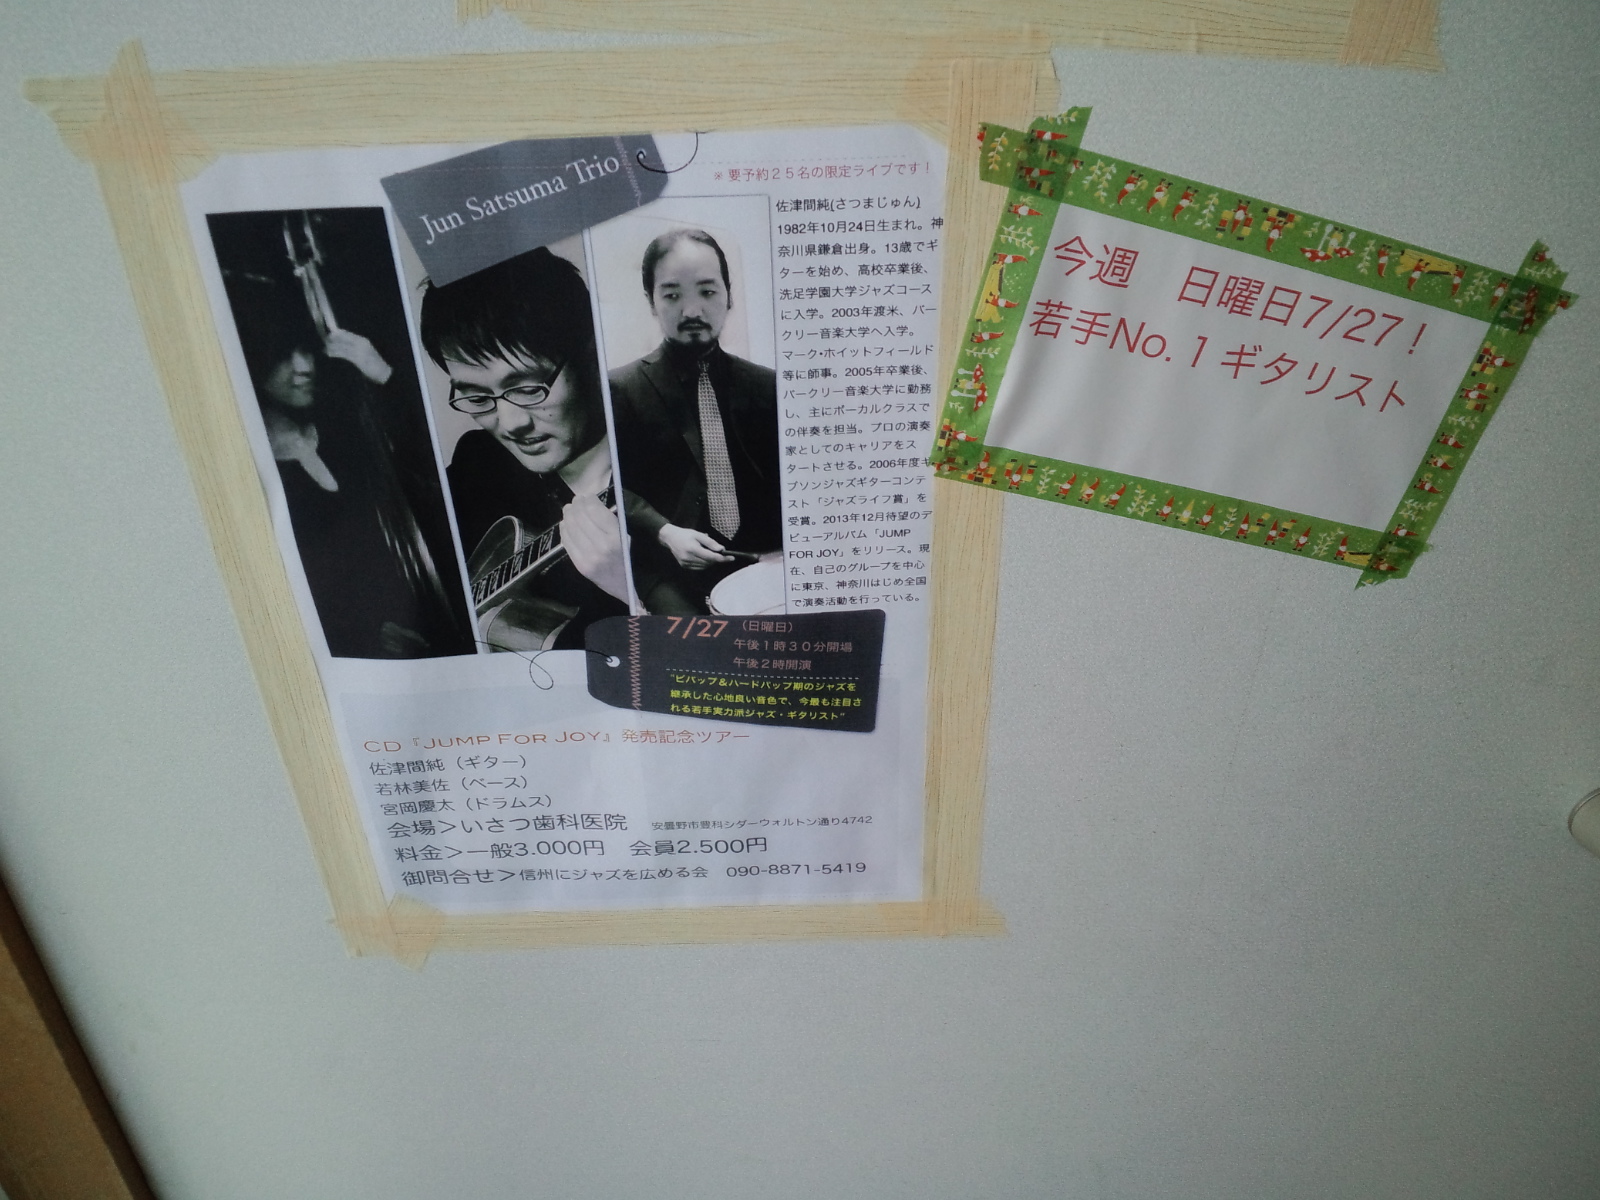 Jun Satsuma Trio
※要予約25名の限定ライブです!
佐津間純(さつまじゅん)
1982年10月24日生まれ。神
奈川県鎌倉出身。13歳でギ
ターを始め、高校卒業後、
洗足学園大学ジャズコース
に入学。2003年渡米、バー
クリー音楽大学へ入学。
マーク・ホイットフィールド
等に師事。2005年卒業後、
バークリー音楽大学に勤務
し、主にボーカルクラスで
の伴奏を担当。プロの演奏
家としてのキャリアをス
タートさせる。2006年度ギ
ブソンジャズギターコンテ
スト「ジャズライフ賞」を
受賞。2013年12月待望のデ
ビューアルバム「JUMP
FOR JOY」をリリース。現
在、自己のグループを中心
に東京、神奈川はじめ全国
で演奏活動を行っている。
7/27(日曜日)
午後1時30分開場
午後2時開演
"ビバップ&ハードバップ期のジャズを
継承した心地良い音色で、今最も注目さ
れる若手実力派ジャズ・ギタリスト"
CD『JUMP FOR JOY』発売記念ツアー
佐津間純(ギター)
若林美佐(ベース)
宮岡慶太(ドラムス)
会場>いさつ歯科医院 安曇野市豊科シダーウォルトン通り4742
料金>一般3.000円 会員2.500円
御問合せ>信州にジャズを広める会 090-8871-5419
今週 日曜日7/27!
若手No.1ギタリスト